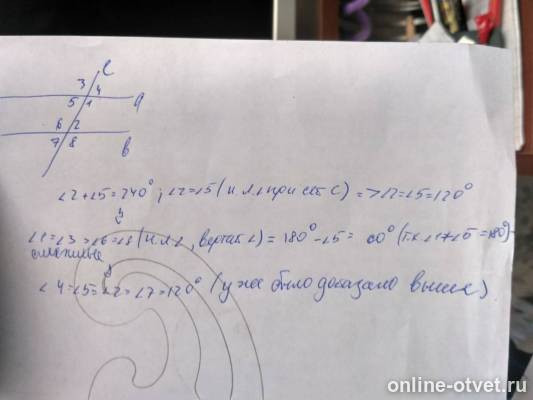 c
3 4
5 1 a
6 2
7 8 b
∠2+∠5=240°; ∠2=∠5 (н.л.∠ при сек c) => ∠2=∠5=120°
∠1=∠3=∠6=∠8 (н.л.∠, вертик ∠) = 180°-∠5= 60° (т.к ∠1+∠5=180°)-
смежные
∠4=∠5=∠2=∠7=120° (уже было доказано выше)
online-otvet.ru